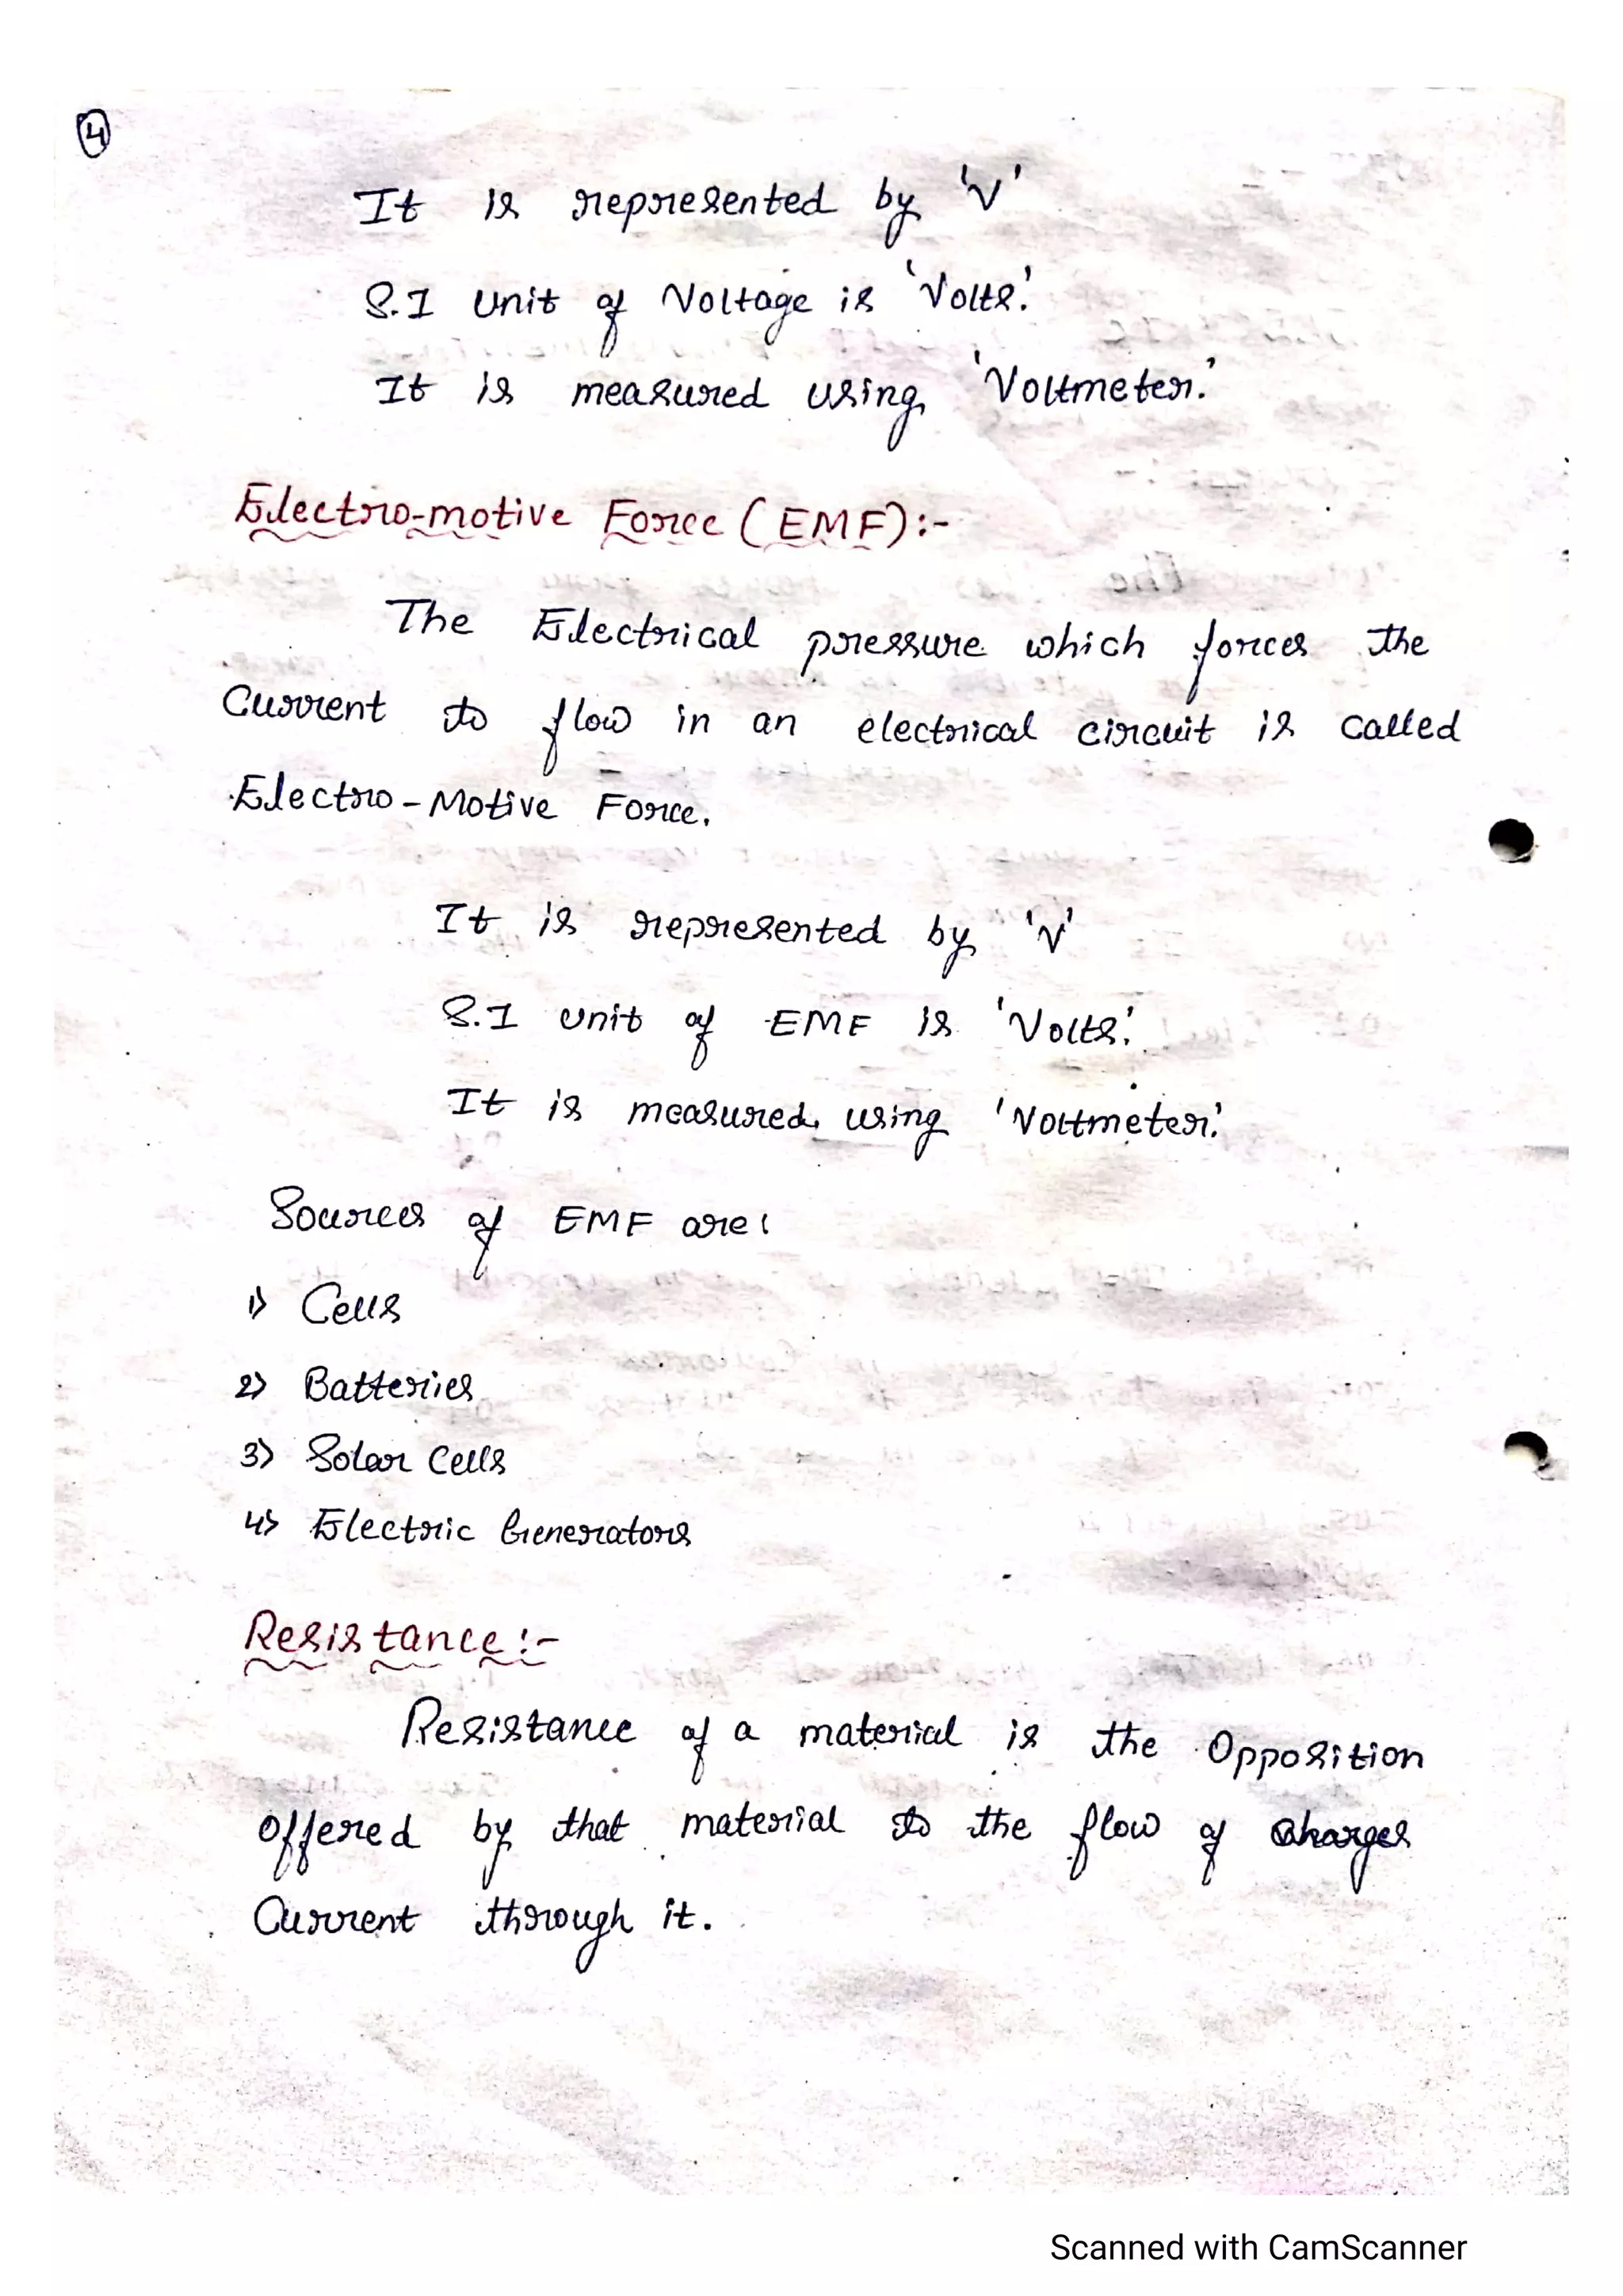 4
It is represented by 'V'
S.I Unit of Voltage is 'Volts.'
It is measured using 'Voltmeter.'
Electro-motive Force (EMF):-
The Electrical pressure which forces the
Current to flow in an electrical circuit is called
Electro-Motive Force.
It is represented by 'V'
S.I Unit of EMF is 'Volts.'
It is measured using 'Voltmeter.'
Sources of EMF are:
1) Cells
2) Batteries
3) Solar Cells
4) Electric Generators
Resistance:-
Resistance of a material is the Opposition
offered by that material to the flow of Charges
Current through it.
Scanned with CamScanner